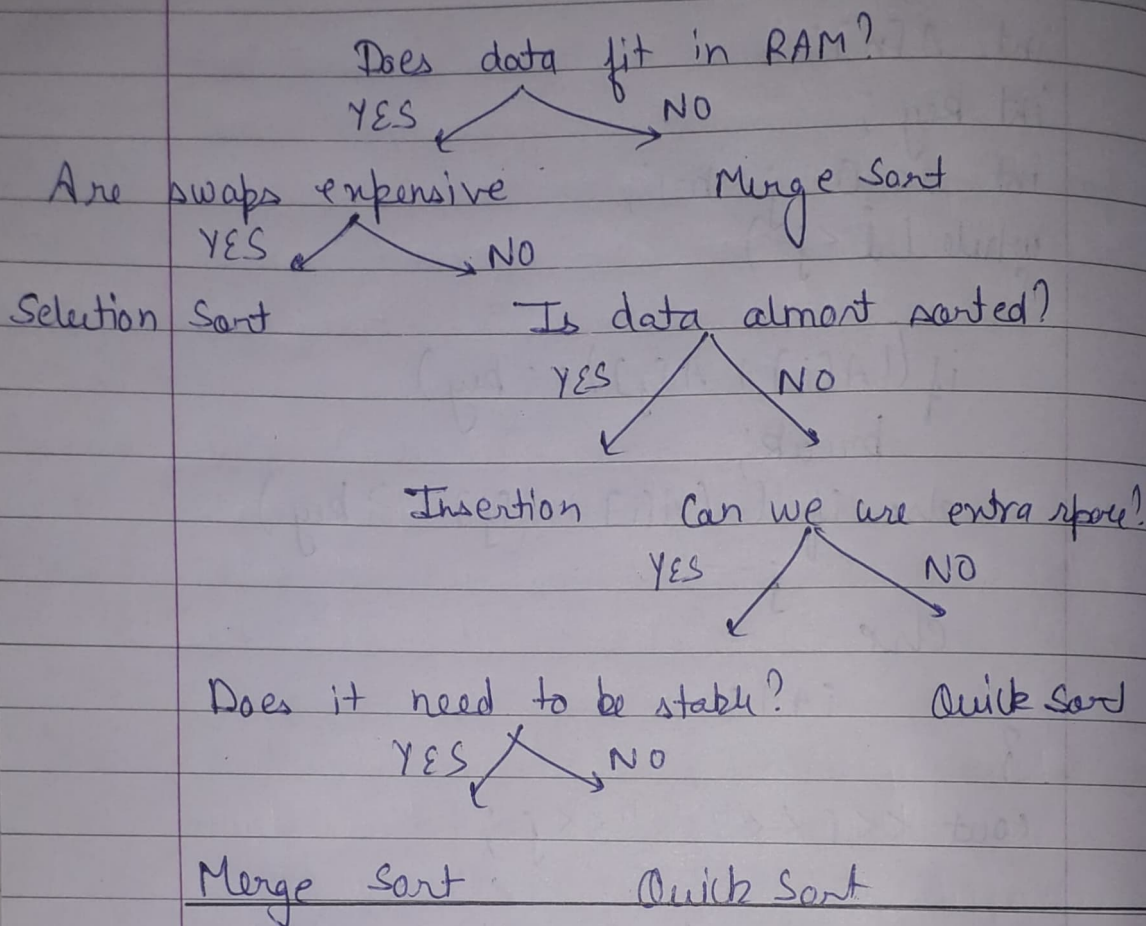 Does data fit in RAM?
YES NO
Are swaps expensive Merge Sort
YES NO
Selection Sort Is data almost sorted?
YES NO
Insertion Can we use extra space?
YES NO
Does it need to be stable? Quick Sort
YES NO
Merge Sort Quick Sort